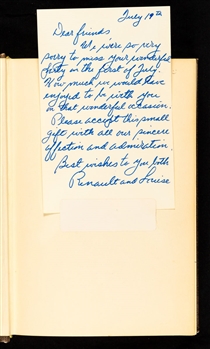 July 19th
Dear friends,
We were so very
sorry to miss your wonderful
party on the first of July.
How much we would have
enjoyed to be with you
on that wonderful occasion.
Please accept this small
gift with all our sincere
affection and admiration.
Best wishes to you both
Renault and Louise